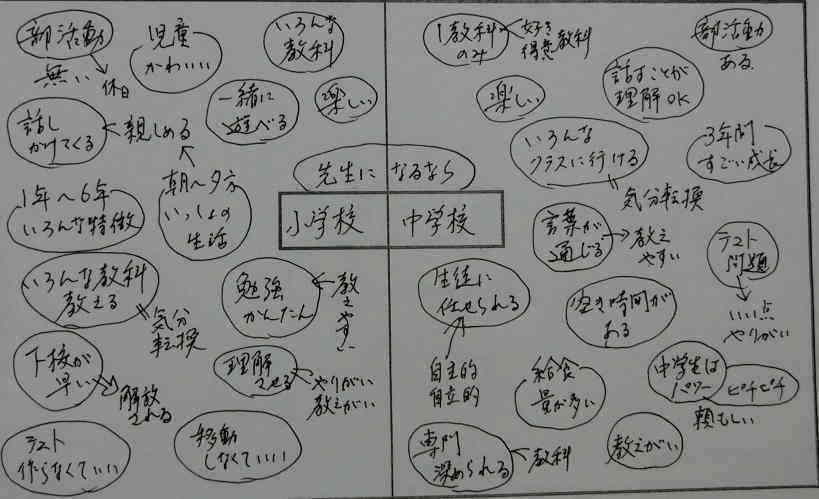 部活動
無い
休日
児童
かわいい
いろんな
教科
話し
かけてくる
親しめる
一緒に
遊べる
楽しい
1年～6年
いろんな特徴
朝～夕方
いっしょの
生活
いろんな教科
教える
気分
転換
勉強
かんたん
教えやすい
下校が
早い
解放
される
理解
させる
やりがい
教えがい
テスト
作らなくていい
移動
しなくていい
先生になるなら
小学校
中学校
1教科
のみ
好き
得意教科
部活動
ある
楽しい
話すことが
理解OK
いろんな
クラスに行ける
気分転換
3年間
すごい成長
言葉が
通じる
教え
やすい
テスト
問題
いい点
やりがい
生徒に
任せられる
自主的
自立的
空き時間が
ある
給食
量が多い
中学生は
パワー
ピチピチ
頼もしい
専門
深められる
教科
教えがい